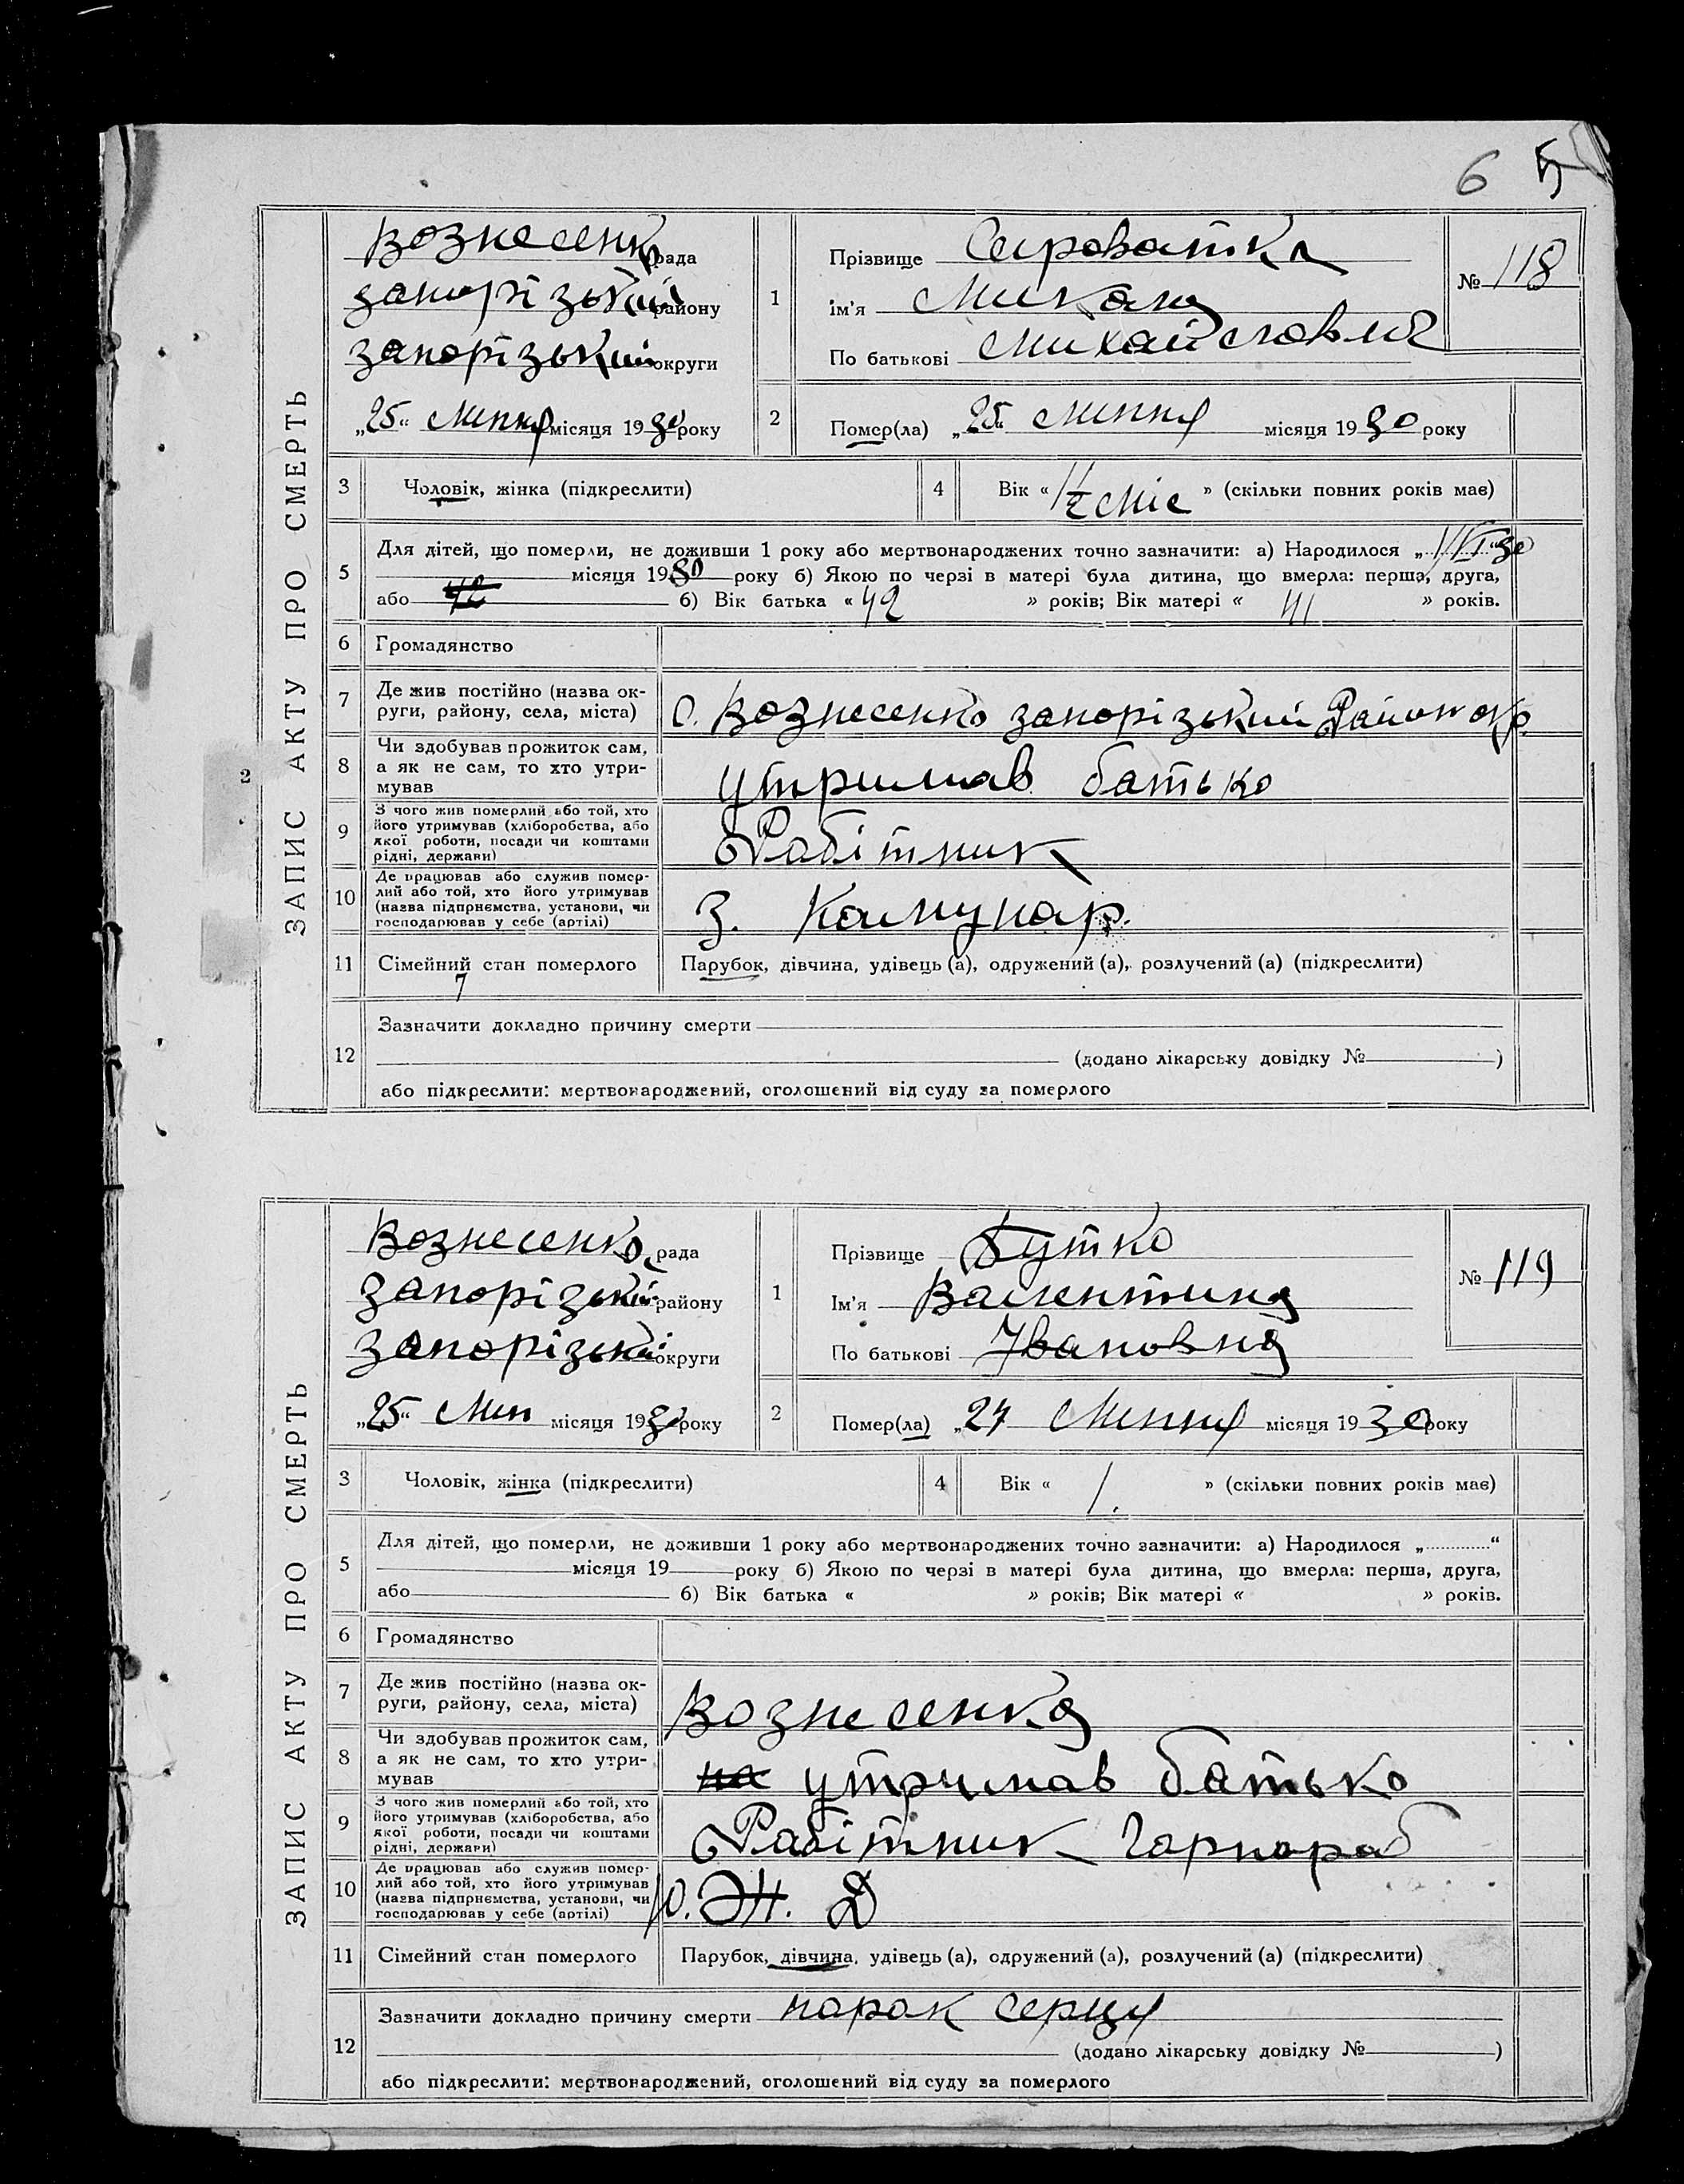 6 5
ЗАПИС АКТУ ПРО СМЕРТЬ
2
Вознесенко рада
запорізький району
запорізький округи
„25“ Липня місяця 1930 року
1
Прізвище Сероватка
ім'я Микола
По батькові Михайлович
№ 118
2
Помер(ла) „25“ Липня місяця 1930 року
3
Чоловік, жінка (підкреслити)
4
Вік « 1/2 міс » (скільки повних років має)
5
Для дітей, що померли, не доживши 1 року або мертвонароджених точно зазначити: а) Народилося „
місяця 1930 року б) Якою по черзі в матері була дитина, що вмерла: перша, друга,
або б) Вік батька « 42 » років; Вік матері « 41 » років.
6
Громадянство
7
Де жив постійно (назва ок-
руги, району, села, міста)
с. Вознесенко запорізький Район окр.
8
Чи здобував прожиток сам,
а як не сам, то хто утри-
мував
утримав батько
9
З чого жив померлий або той, хто
його утримував (хліборобства, або
якої роботи, посади чи коштами
рідні, держави)
Робітник
10
Де працював або служив помер-
лий або той, хто його утримував
(назва підприємства, установи, чи
господарював у себе (артілі)
З. Комунар.
11
Сімейний стан померлого
7
Парубок, дівчина, удівець (а), одружений (а), розлучений (а) (підкреслити)
12
Зазначити докладно причину смерти
(додано лікарську довідку № )
або підкреслити: мертвонароджений, оголошений від суду за померлого
ЗАПИС АКТУ ПРО СМЕРТЬ
Вознесенко рада
Запорізький району
Запорізький округи
„25“ Лип місяця 1930 року
1
Прізвище Бутко
Ім'я Валентина
По батькові Ивановна
№ 119
2
Помер(ла) „24 Липня місяця 1930 року
3
Чоловік, жінка (підкреслити)
4
Вік « 1. » (скільки повних років має)
5
Для дітей, що померли, не доживши 1 року або мертвонароджених точно зазначити: а) Народилося „ “
місяця 19 року б) Якою по черзі в матері була дитина, що вмерла: перша, друга,
або б) Вік батька « » років; Вік матері « » років.
6
Громадянство
7
Де жив постійно (назва ок-
руги, району, села, міста)
Вознесенка
8
Чи здобував прожиток сам,
а як не сам, то хто утри-
мував
на утримав батько
9
З чого жив померлий або той, хто
його утримував (хліборобства, або
якої роботи, посади чи коштами
рідні, держави)
Робітник Чорнораб
10
Де працював або служив помер-
лий або той, хто його утримував
(назва підприємства, установи, чи
господарював у себе (артілі)
Ю. Ж. Д
11
Сімейний стан померлого
Парубок, дівчина, удівець (а), одружений (а), розлучений (а) (підкреслити)
12
Зазначити докладно причину смерти порок серця
(додано лікарську довідку № )
або підкреслити: мертвонароджений, оголошений від суду за померлого